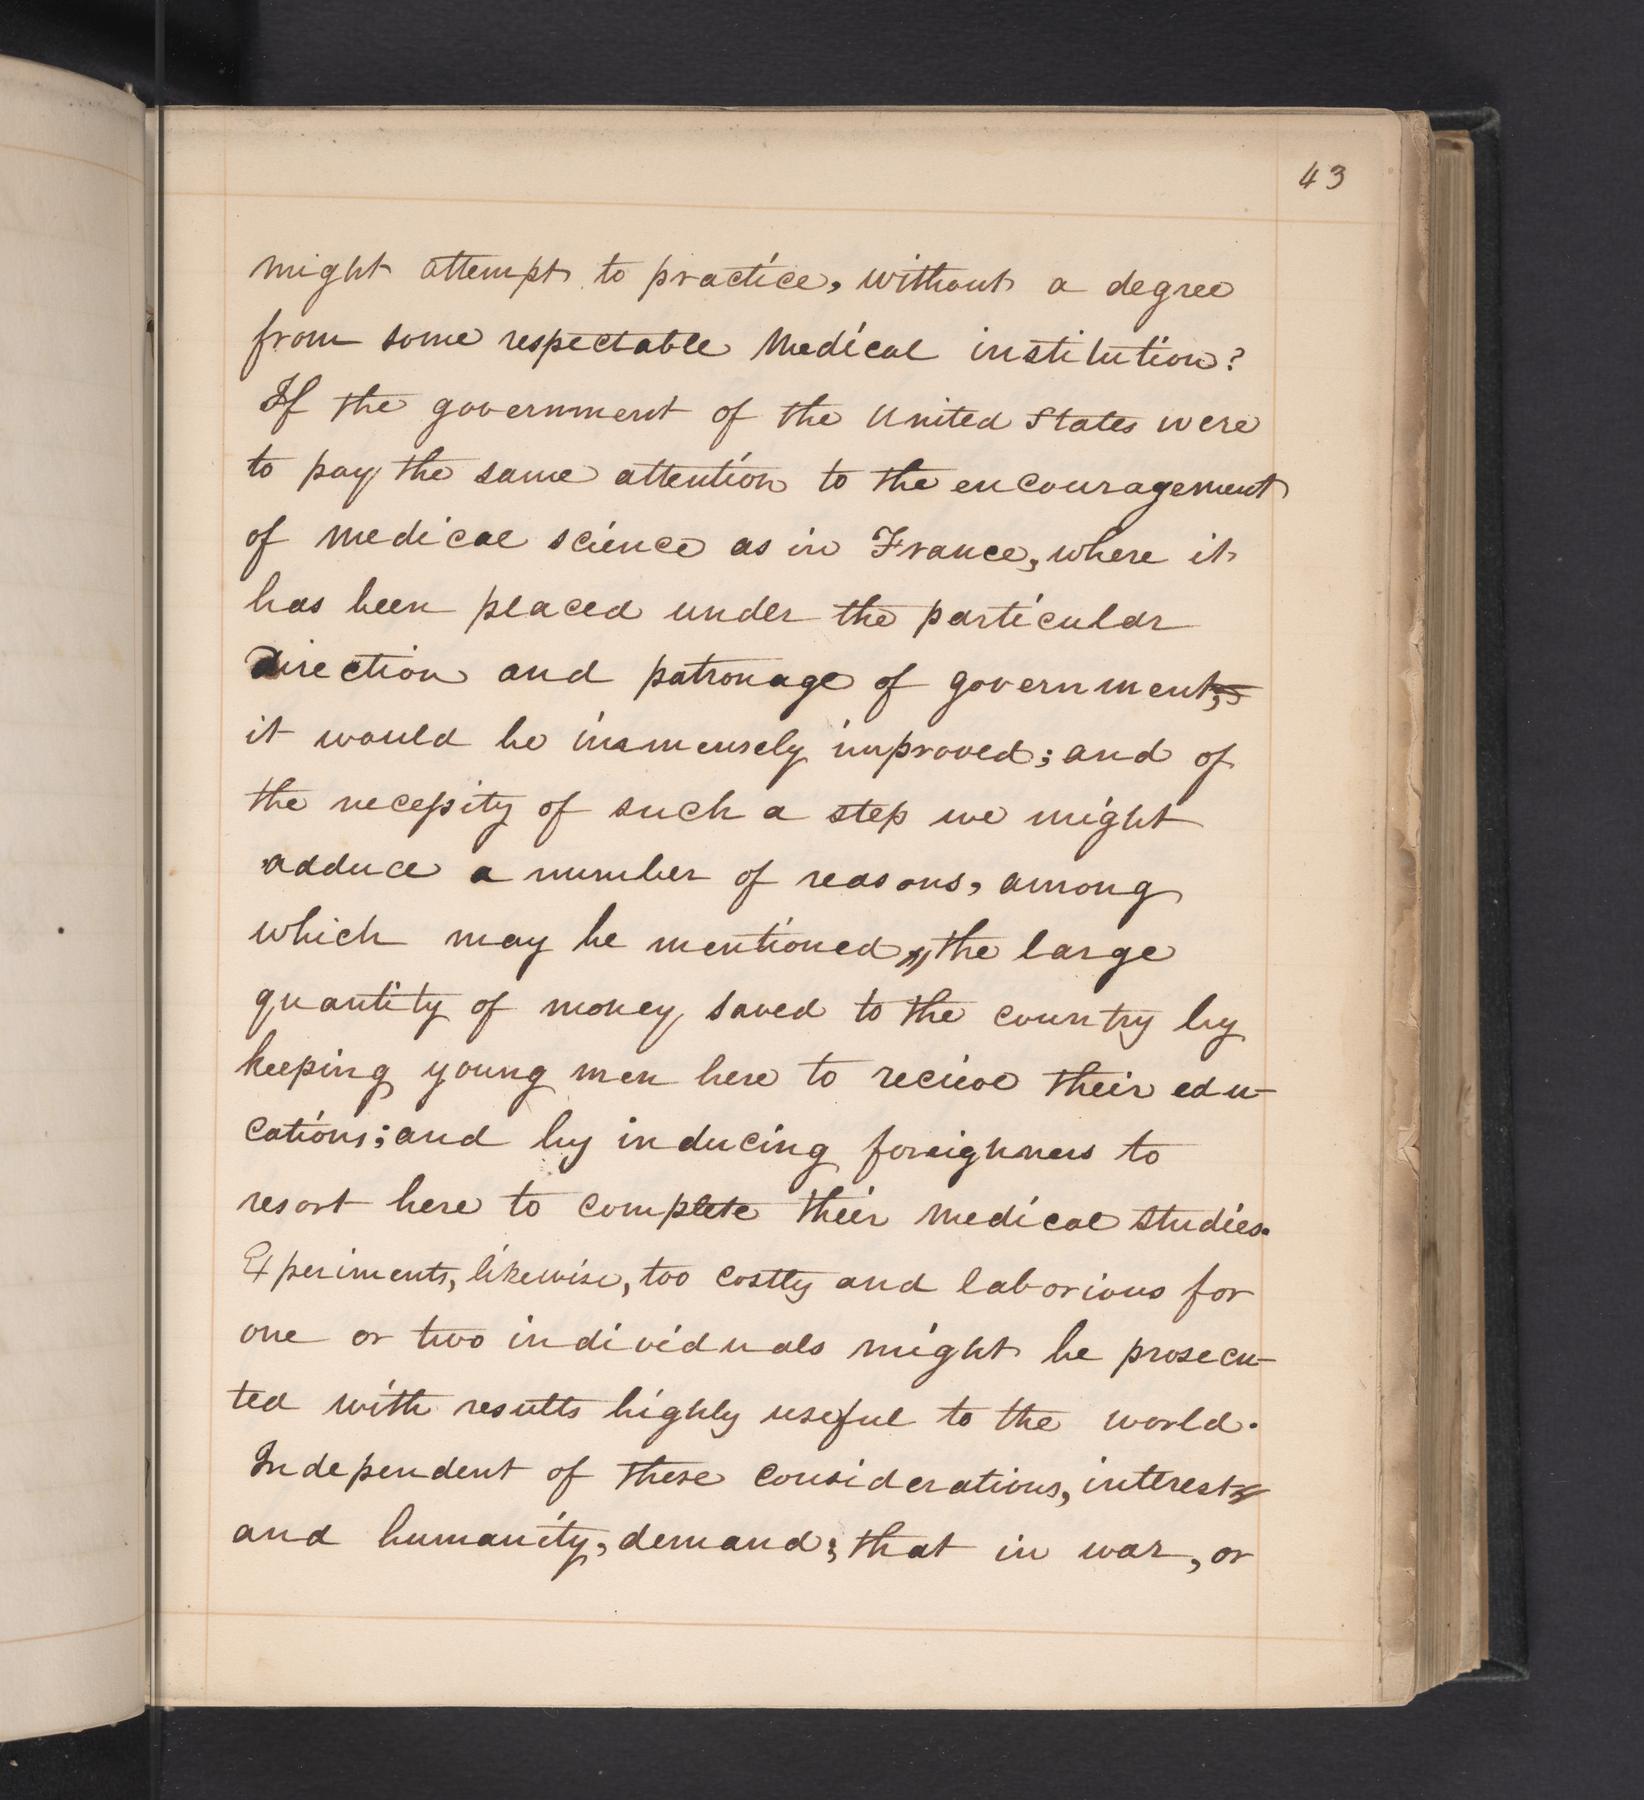 43
might attempt to practice, without a degree
from some respectable Medical institution?
If the government of the United States were
to pay the same attention to the encouragement
of Medical science as in France, where it
has been placed under the particular
direction and patronage of government,
it would be immensely improved; and of
the necessity of such a step we might
adduce a number of reasons, among
which may be mentioned, the large
quantity of money saved to the country by
keeping young men here to recieve their edu-
cations; and by inducing foreighners to
resort here to complete their Medical studies.
Experiments, likewise, too costly and laborious for
one or two individuals might be prosecu-
ted with results highly useful to the world.
Independent of these considerations, interest
and humanity, demand; that in war, or